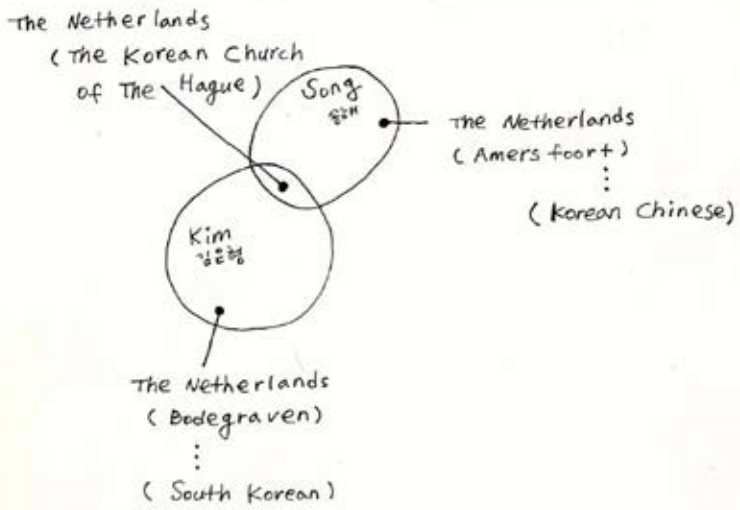 The Netherlands
(The Korean Church
of The Hague)
Song
The Netherlands
(Amersfoort)
(Korean Chinese)
Kim
김은형
The Netherlands
(Bodegraven)
(South Korean)